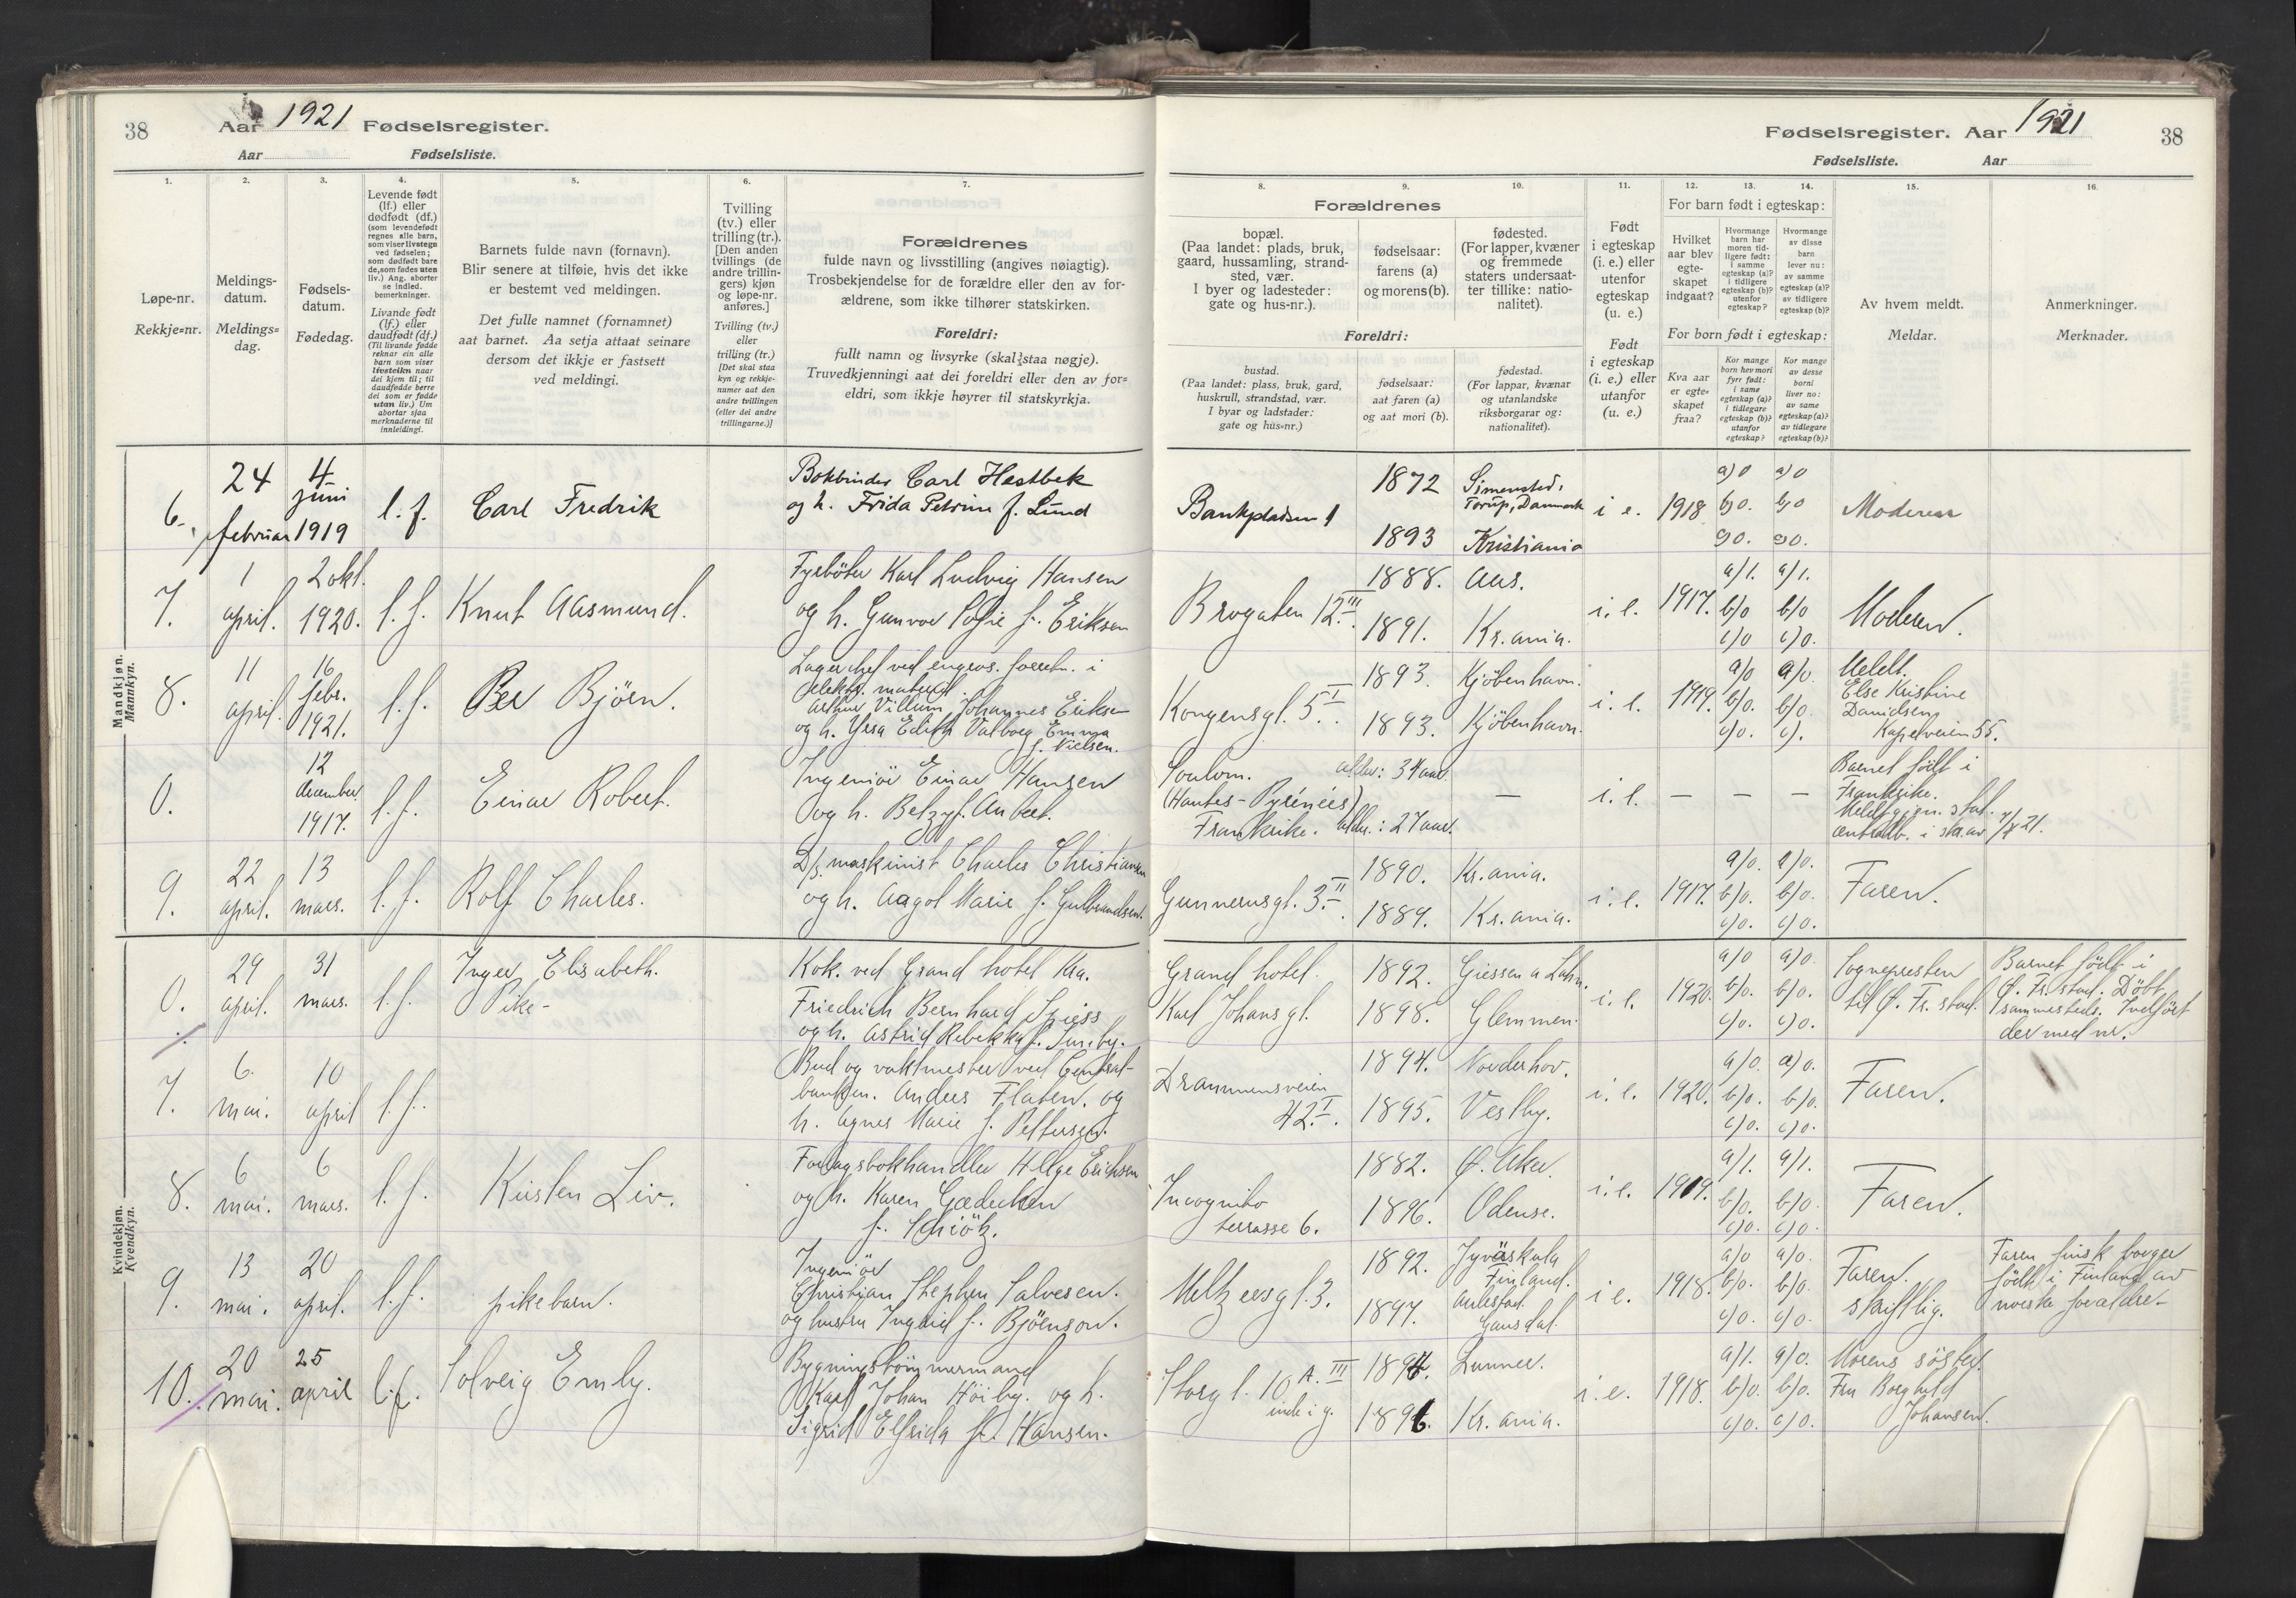 38
Aar 1921 Fødselsregister.
Aar Fødselsliste.
1. 2. 3. 4. 5. 6. 7.
Løpe-nr.
Rekkje=nr.
Meldings-
datum.
Meldings=
dag.
Fødsels-
datum.
Fødedag.
Levende født
(lf.) eller
dødfødt (df.)
(som levendefødt
regnes alle barn,
som viser livstegn
ved fødselen;
som dødfødt bare
de, som fødes uten
liv.) Ang. aborter
se indled.
bemerkninger.
Livande født
(lf.) eller
daudfødt (df.)
(Til livande fødde
reknar ein alle
barn som viser
livsteikn naar
dei kjem til; til
daudfødde berre
dei som er fødde
utan liv.) Um
abortar sjaa
merknaderne til
innleidingi.
Barnets fulde navn (fornavn).
Blir senere at tilføie, hvis det ikke
er bestemt ved meldingen.
Det fulle namnet (fornamnet)
aat barnet. Aa setja attaat seinare
dersom det ikkje er fastsett
ved meldingi.
Tvilling
(tv.) eller
trilling (tr.).
[Den anden
tvillings (de
andre trillin-
gers) kjøn
og løpe-nr.
anføres.]
Tvilling (tv.)
eller
trilling (tr.)
[Det skal staa
kyn og rekkje-
numer aat den
andre tvillingen
(eller dei andre
trillingarne.)]
Forældrenes
fulde navn og livsstilling (angives nøiagtig).
Trosbekjendelse for de forældre eller den av for-
ældrene, som ikke tilhører statskirken.
Foreldri:
fullt namn og livsyrke (skal staa nøgje).
Truvedkjenningi aat dei foreldri eller den av for=
eldri, som ikkje høyrer til statskyrkja.
Fødselsregister. Aar 1921
38
Fødselsliste. Aar
8. 9. 10. 11. 12. 13. 14. 15. 16.
Forældrenes
bopæl.
(Paa landet: plads, bruk,
gaard, hussamling, strand-
sted, vær.
I byer og ladesteder:
gate og hus-nr.).
fødselsaar:
farens (a)
og morens (b).
fødested.
(For lapper, kvæner
og fremmede
staters undersaat-
ter tillike: natio-
nalitet).
Foreldri:
bustad.
(Paa landet: plass, bruk, gard,
huskrull, strandstad, vær.
I byar og ladstader:
gate og hus=nr.)
fødselsaar:
aat faren (a)
og aat mori (b).
fødestad.
(For lappar, kvænar
og utanlandske
riksborgarar og:
nationalitet).
Født
i egteskap
(i. e.) eller
utenfor
egteskap
(u. e.)
Født
i egteskap
(i. e.) eller
utanfor
(u. e.)
For barn født i egteskap:
Hvilket
aar blev
egte-
skapet
indgaat?
Hvormange
barn har
moren tid-
ligere født:
i samme
egteskap (a)?
i tidligere
egteskap (b)?
utenfor
egteskap?
Hvormange
av disse
barn
lever nu:
av samme
egteskap (a)?
av tidligere
egteskap (b)?
For born født i egteskap:
Kva aar
er egte-
skapet
fraa?
Kor mange
born hev mori
fyrr født:
i same
egteskap (a)?
i tidlegare
egteskap (b)?
utanfor
egteskap?
Kor mange
av desse
borni
liver no:
av same
egteskap (a)?
av tidlegare
egteskap (b)?
Av hvem meldt.
Meldar.
Anmerkninger.
Merknader.
Mandkjøn.
Mannkyn.
6. 24 februar 4 juni 1919 l. f. Carl Fredrik
Bokbinder Carl Hestbek
og h. Frida Petrine f. Lund
Bankpladsen 1 1872 Simensted,
Torup, Danmark
1893 Kristiania
i e. 1918 a) 0 b) 0. c) 0. a) 0 b) 0 c) 0. Moderen
7. 1 april. 2 okt. 1920. l. f. Knut Aasmund.
Fyrbøter Karl Ludvig Hansen
og h. Gunvor Sofie f. Eriksen
Brogaten 12 III. 1888. Aas.
1891. Kr.ania.
i. e. 1917. a/1. b/o c/o a/1. b/o c/o. Moderen.
8. 11 april. 16 febr. 1921. l. f. Per Bjørn.
Lagerchef ved engros. forretn. i
elektr. materiel.
Arthur Villum Johannes Eriksen
og h. Yrsa Edith Valborg Emma
f. Nielsen.
Kongensgt. 5 I. 1893. Kjøbenhavn.
1893. Kjøbenhavn.
i. e. 1919. a/o b/o. c/o. a/o. b/o. c/. Meldt.
Else Kristine
Davidsen,
Kapelveien 55.
0. 12 december 1917. l. f. Einar Robert.
Ingeniør Einar Hansen
og h. Betzy f. Aubert.
Soulom.
(Hautes-Pyrénées)
Frankrike.
alder: 34 aar.
alder: 27 aar.
— i. e. — — — Barnet født i
Frankrike.
Meldt gjen. stat.
centralb. i skr. av 7/8 21.
9. 22 april. 13 mars. l. f. Rolf Charles.
D/s. maskinist Charles Christiansen
og h. Aagot Marie f. Gulbrandsen.
Gunnerusgt. 3 II. 1890. Kr.ania.
1889. Kr.ania.
i. e. 1917. a/o. b/o. c/o. a/o. b/o. c/o. Faren.
Kvindekjøn.
Kvendkyn.
0. 29 april. 31 mars. l. f. Inger Elisabeth.
Pike-
Kok. ved Grand hotel Kra.
Friedrich Bernhard Spiess
og h. Astrid Rebekka f.
Grand hotel.
Karl Johans gt.
1892. Giessen a Lahn.
1898. Glemmen.
i. e. 1920. a/o b/o. c/o. a/o. b/o. c/o. Sognepresten
til Ø. Fr. stad.
Barnet født i
Ø. Fr. stad. Døbt
sammesteds. Indført
der med nr.
7. 6. mai. 10 april l. f.
Bud og vaktmester ved Central-
banken. Anders Flaten. og
h. Agnes Marie f. Pettersen.
Drammensveien
42 I. 1894. Norderhov.
1895. Vestby.
i. e. 1920. a/o. b/o. c/o. a/o. b/o. c/o. Faren.
8. 6 mai. 6 mars. l. f. Kirsten Liv.
Forlagsbokhandler Helge Erichsen
og h. Karen Gædecken
f. Schiöts.
Incognito
terrasse 6. 1882. Ø. Aker.
1896. Odense.
i. e. 1919. a/1. b/o. c/o. a/1. b/o. c/o Faren.
9. 13 mai. 20 april. l. f. pikebarn.
Ingeniør
Christian Stephen Salvesen.
og hustru Ingrid f. Bjørnson.
Meltzersgt. 3. 1892. Jyväskula
Finland.
1897. Aulestad.
Gausdal.
i e. 1918. a/o b/o. c/o. a/o. b/o. c/o. Faren.
skriftlig.
Faren finsk borger
født i Finland av
norske forældre-
10. 20 mai. 25 april l. f. Solveig Emly.
Bygningstømmermand
Karl Johan Høiby. og h.
Sigrid Elfrida f. Hansen.
Storgt. 10 A. III
inde i g. 1894. Lunner.
1896. Kr.ania.
i. e. 1918. a/1. b/o. c/o. a/o. b/o. c/o. Morens søster.
Fru Borghild
Johansen.